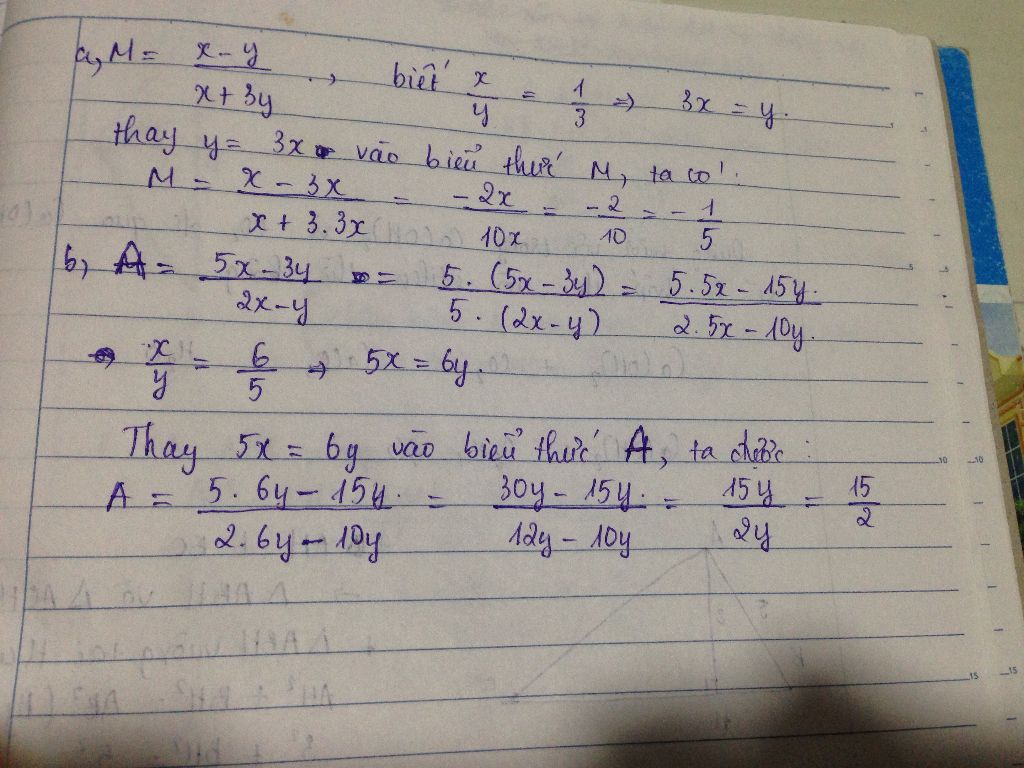 a, M = \frac{x-y}{x+3y}., biết \frac{x}{y} = \frac{1}{3} => 3x = y.
thay y = 3x vào biểu thức M, ta có:
M = \frac{x-3x}{x+3.3x} = \frac{-2x}{10x} = \frac{-2}{10} = -\frac{1}{5}
b, A = \frac{5x-3y}{2x-y} = \frac{5.(5x-3y)}{5.(2x-y)} = \frac{5.5x-15y.}{2.5x-10y.}
\frac{x}{y} = \frac{6}{5} => 5x = 6y.
Thay 5x = 6y vào biểu thức A, ta được:
A = \frac{5.6y-15y.}{2.6y-10y} = \frac{30y-15y.}{12y-10y} = \frac{15y}{2y} = \frac{15}{2}